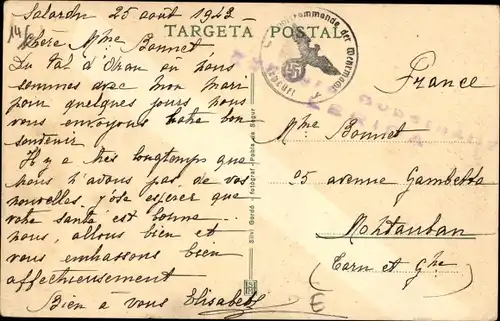 14
Salardu 25 août 1943
TARGETA POSTAL
Chère Mme Bonnet
Du Val d'Aran où nous
sommes avec mon mari
pour quelques jours nous
vous envoyons notre bon
souvenir
Il y a très longtemps que
nous n'avons pas de vos
nouvelles, j'ose espérer que
votre santé est bonne
nous, allons bien et
vous embrassons bien
affectueusement
Bien a vous Elisabeth
France
Mme Bonnet
25 avenue Gambetta
Montauban
(Tarn et Gne)
E